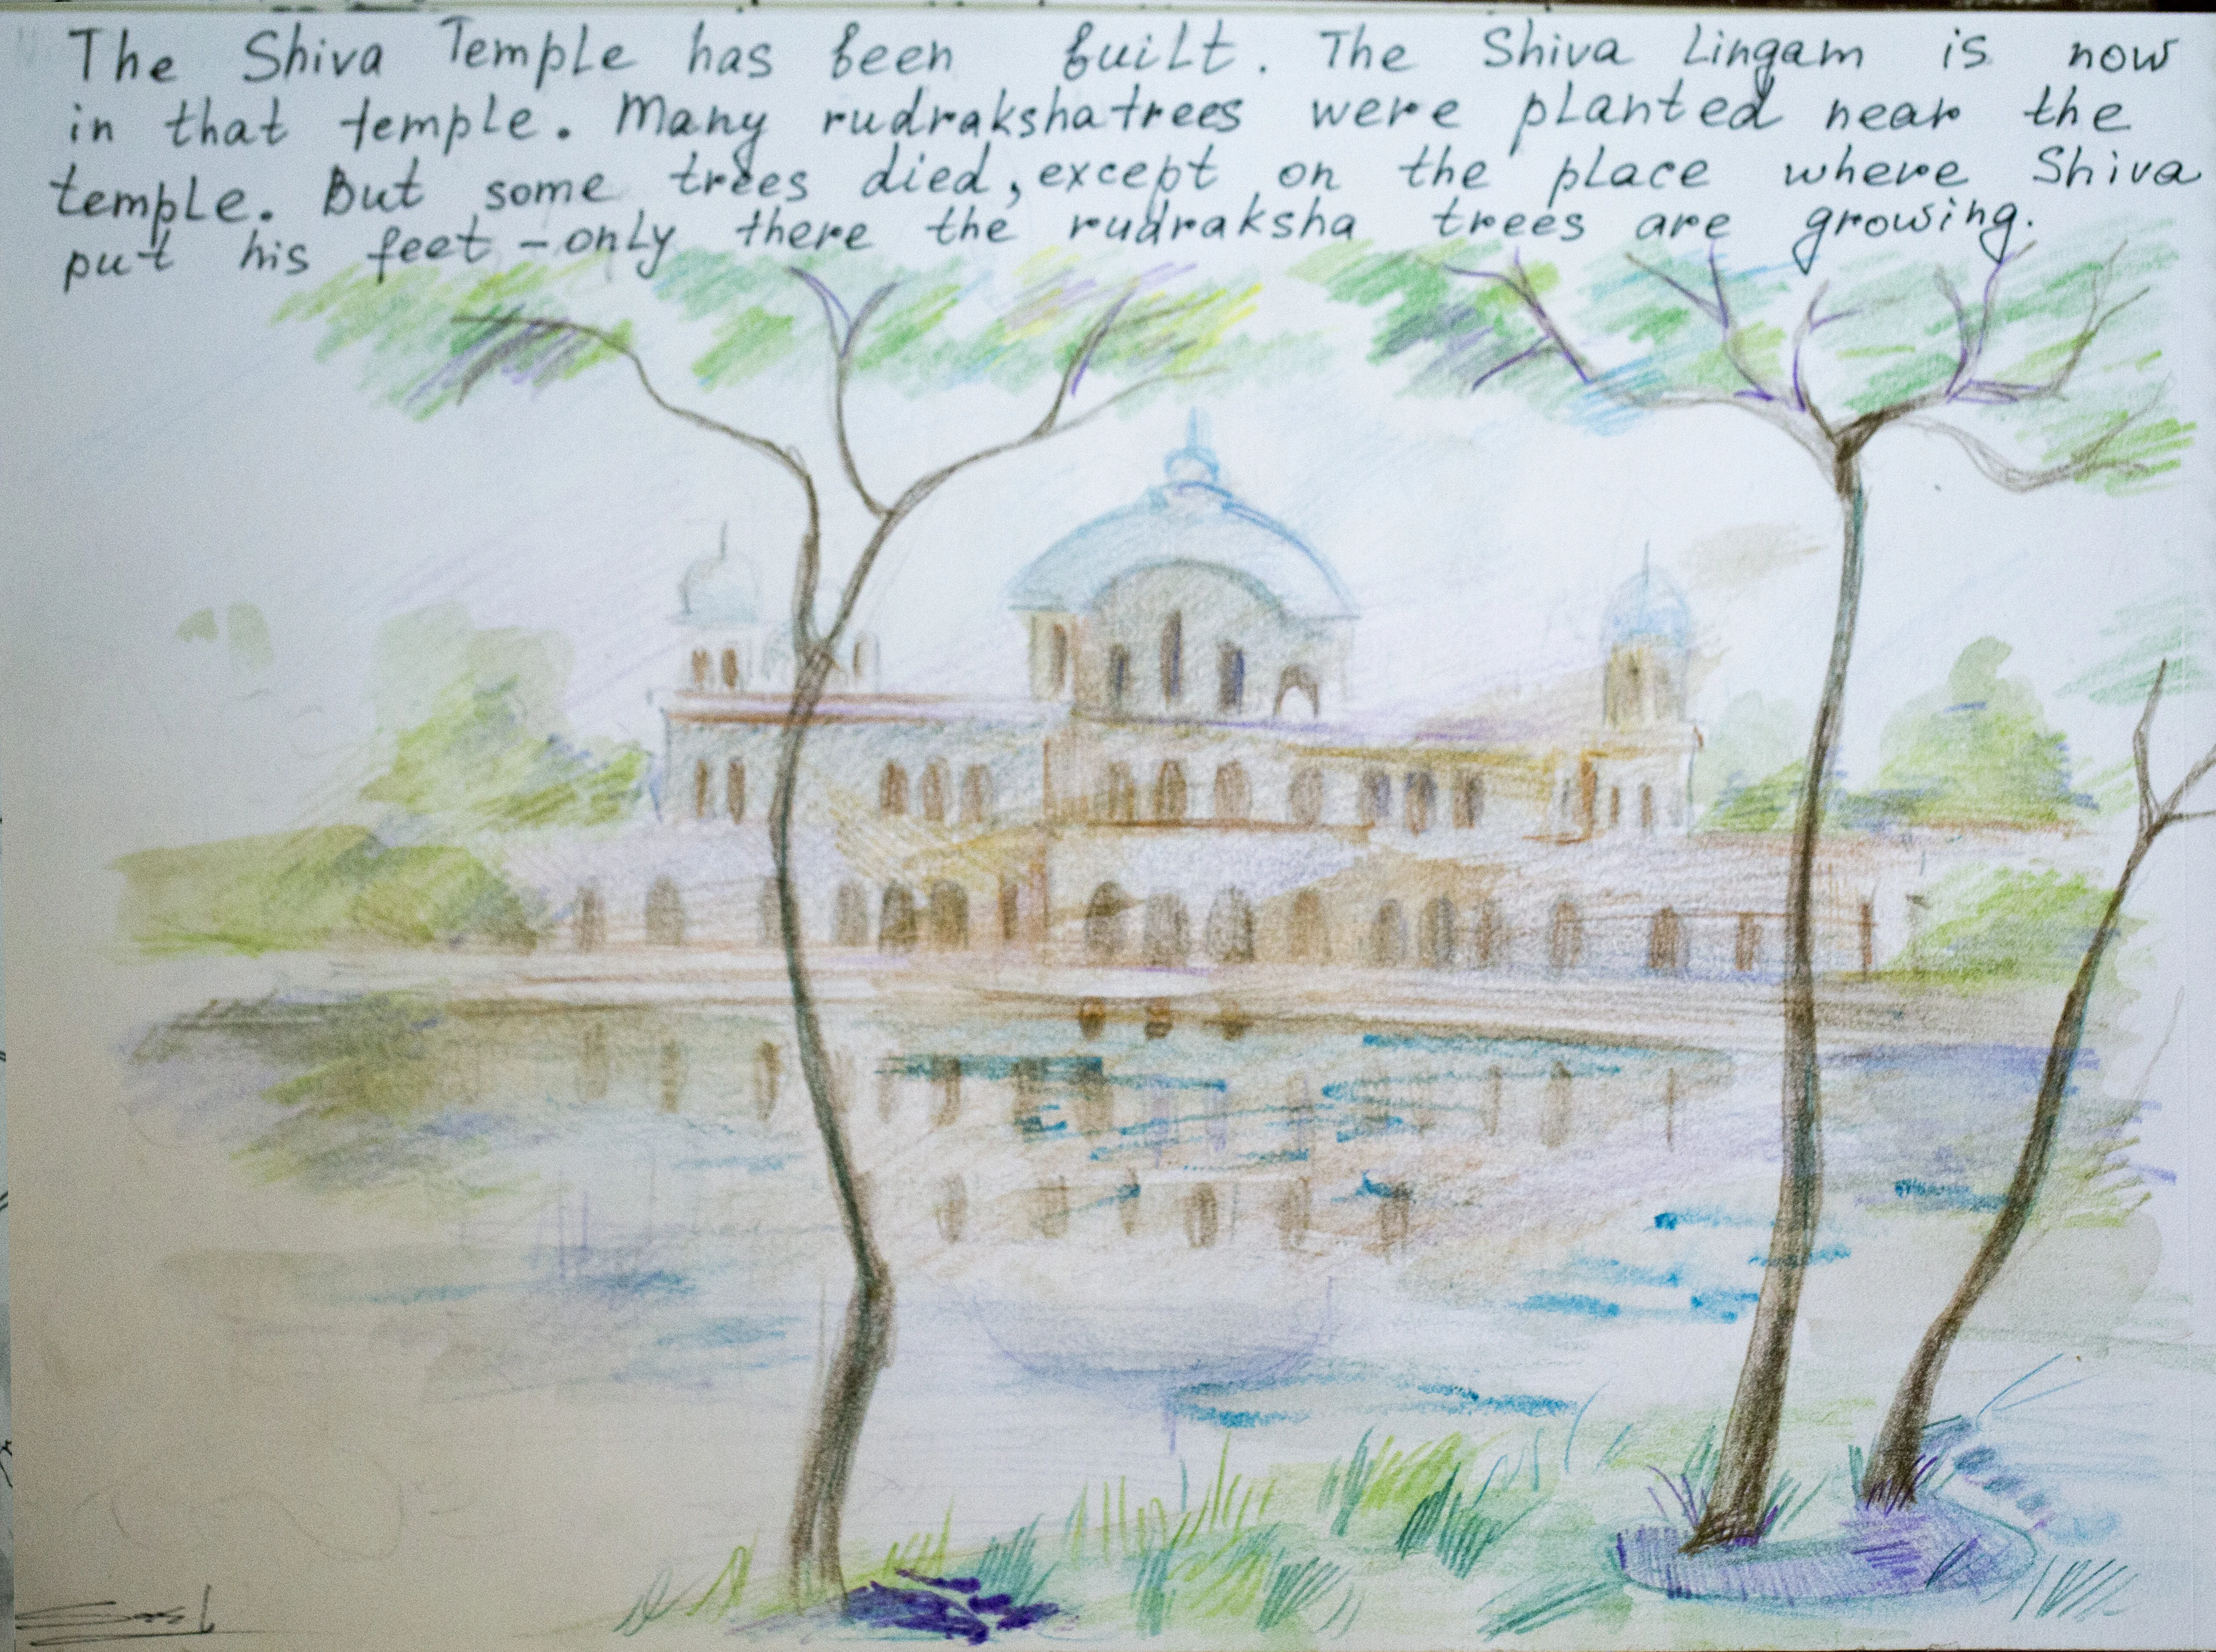 The Shiva Temple has been built. The Shiva Lingam is now
in that temple. Many rudrakshatrees were planted near the
temple. But some trees died, except on the place where Shiva
put his feet - only there the rudraksha trees are growing.